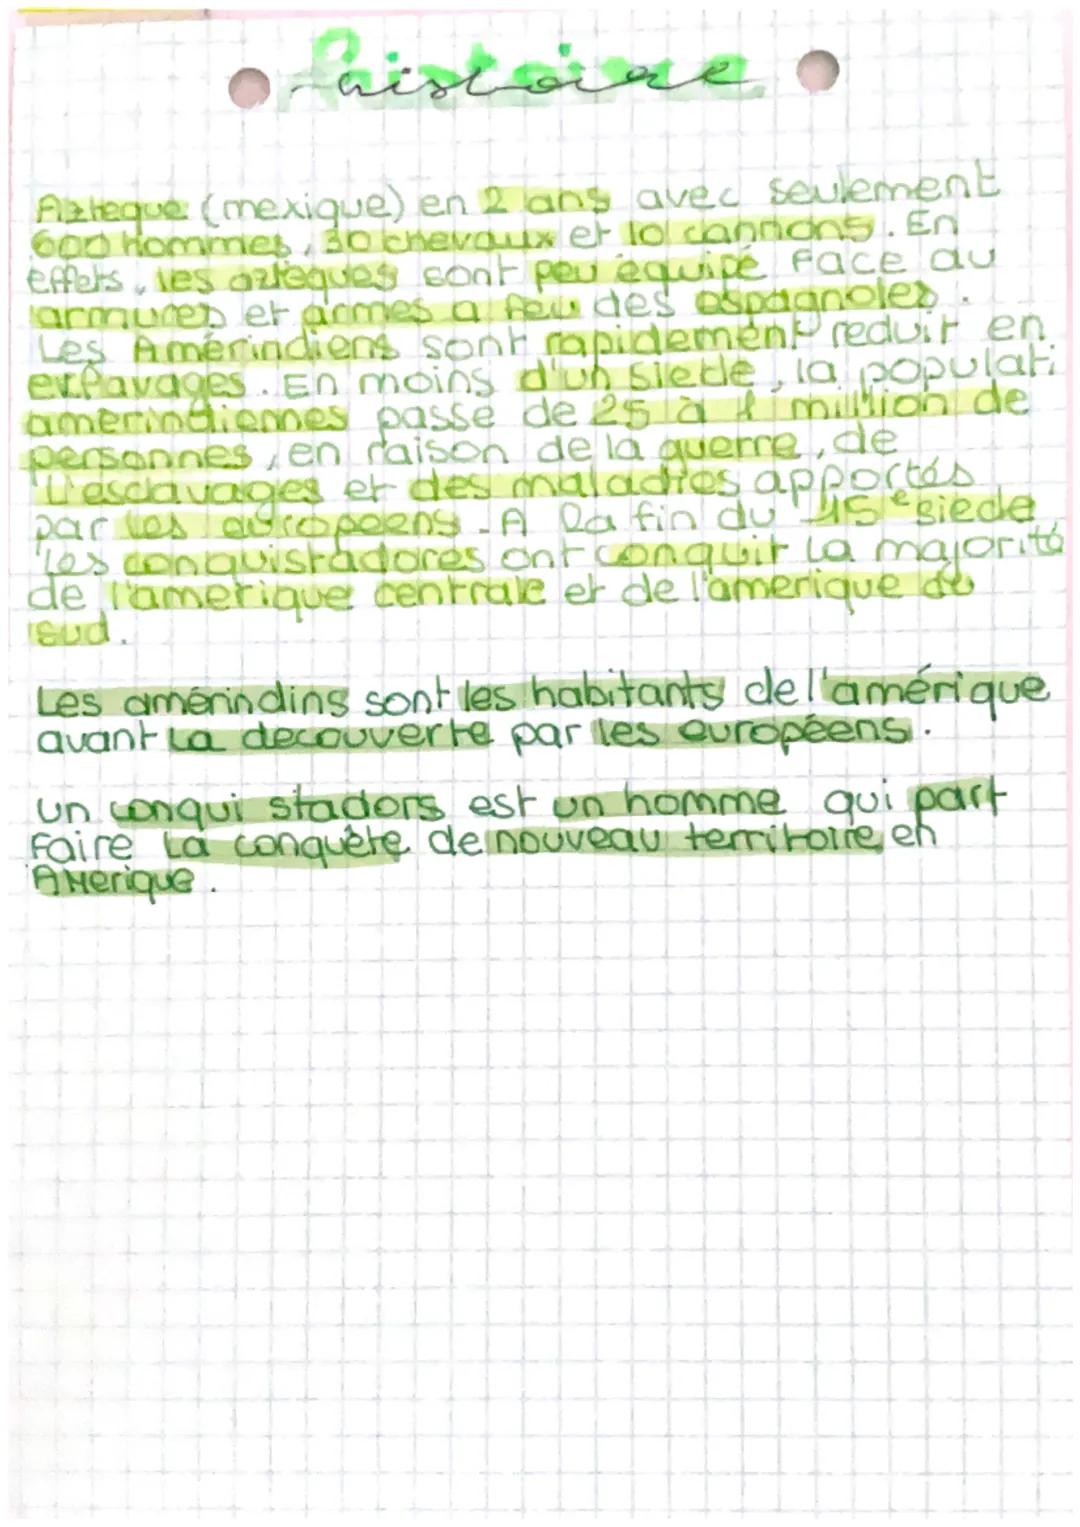 histoire
Azteque (mexique) en 2 ans avec seulement
600 Hommes, 30 chevaux et 10 cannons. En
effets, les azteques sont peu équipé face au
armures et armes a feu des espagnoles.
Les Amérindiens sont rapidement reduit en
esclavages. En moins d'un siecle, la populati
amerindiennes passe de 25 à 1 million de
personnes, en raison de la guerre, de
l'esclavages et des maladies apportés
par les europeens. A la fin du 15e siecle
les conquistadores ont conquit la majorité
de l'amerique centrale et de l'amerique du
sud.
Les amérindins sont les habitants de l'amérique
avant la decouverte par les européens.
un conqui stadors est un homme qui part
faire la conquète de nouveau territoire en
AMerique.